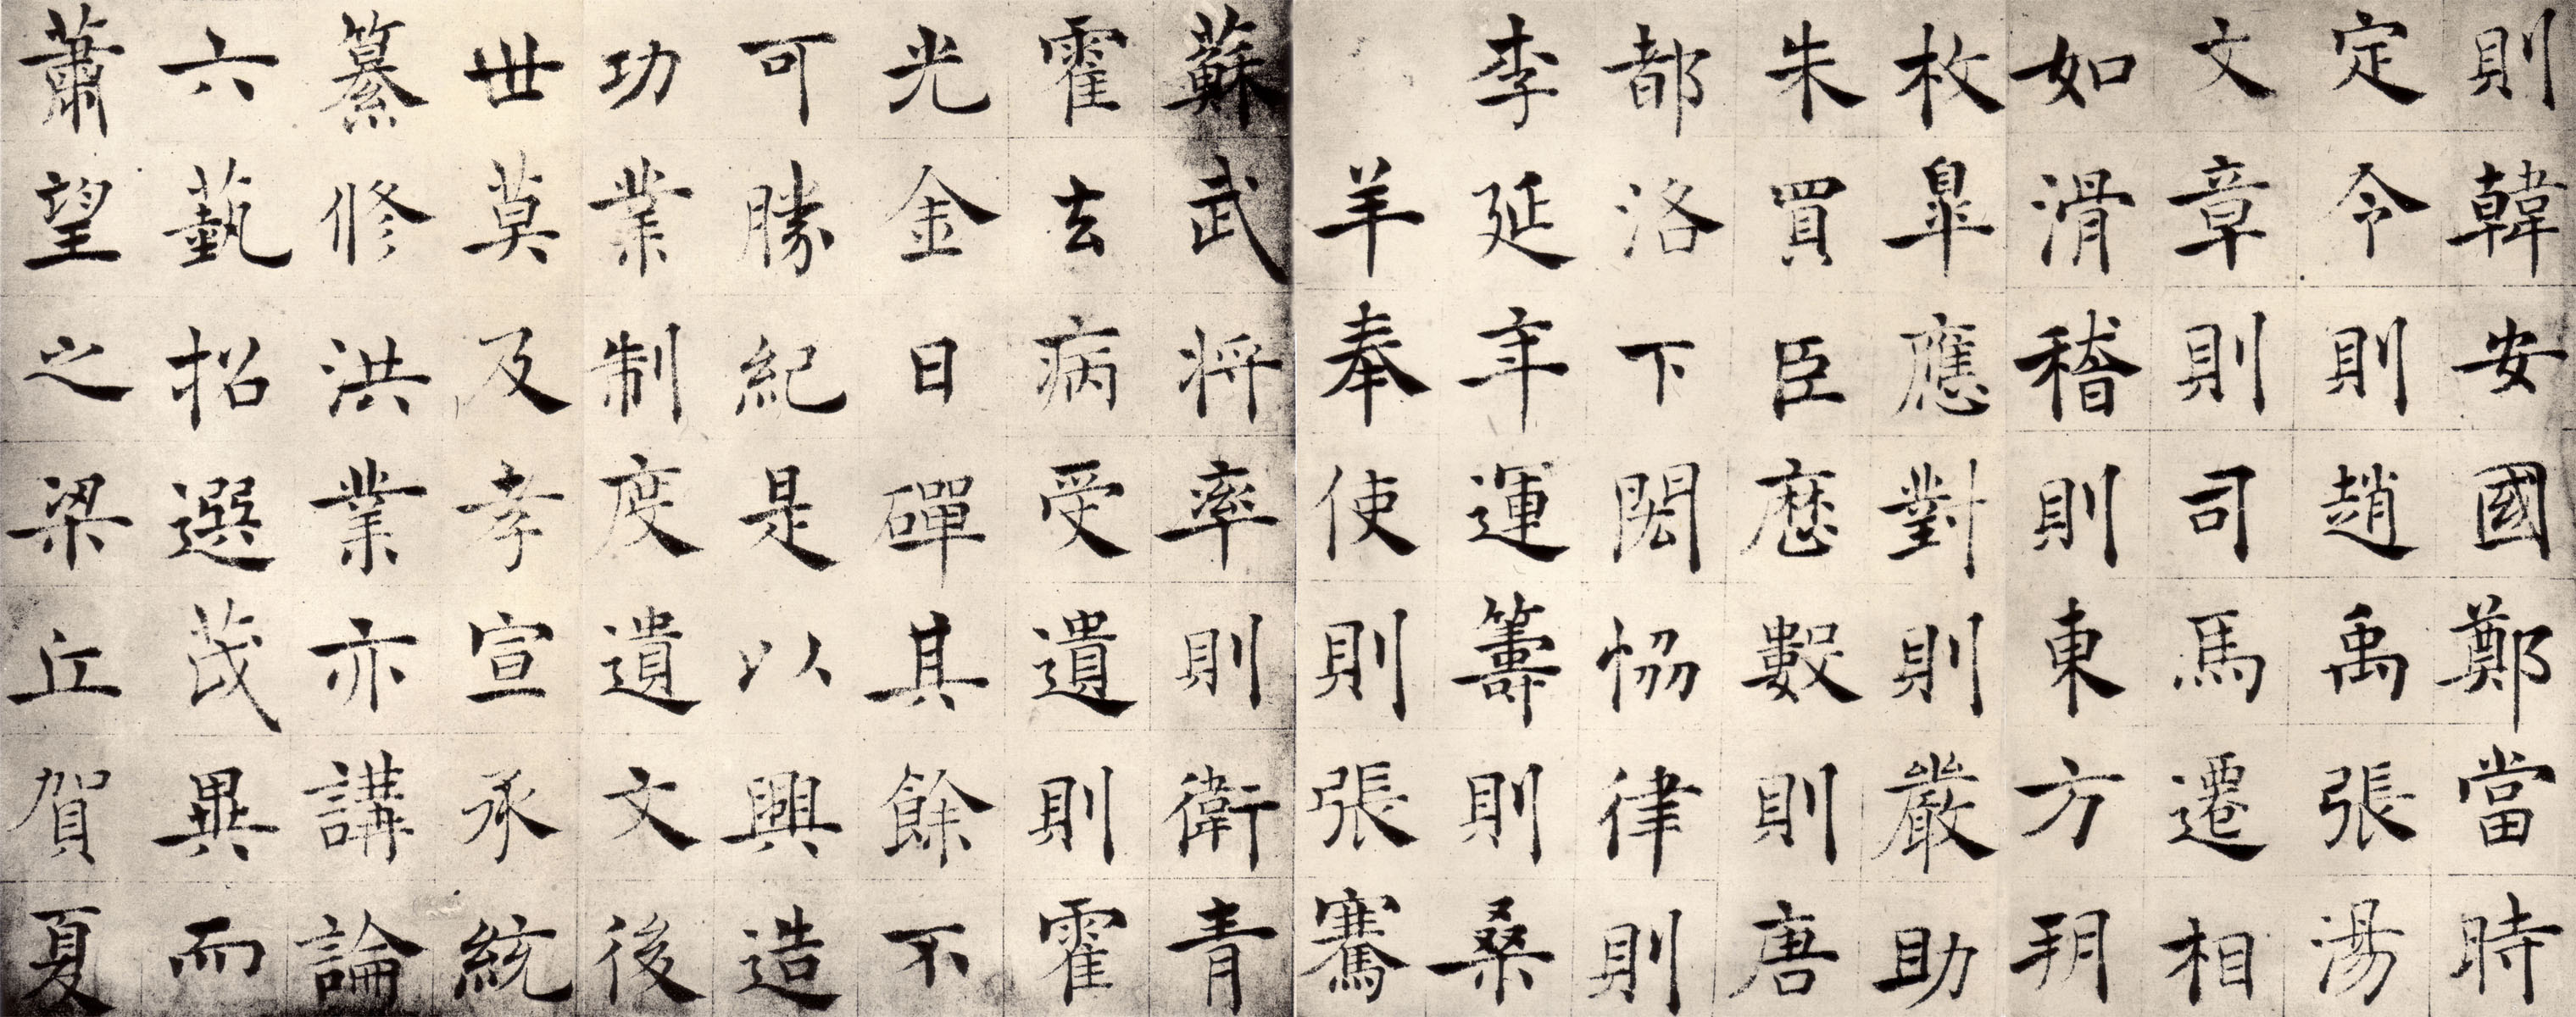 則韓安國鄭當時
定令則趙禹張湯
文章則司馬遷相
如滑稽則東方朔
枚皐應對則嚴助
朱買臣歷數則唐
都洛下閎恊律則
李延年運籌則桑
羊奉使則張騫
蘇武将率則衛青
霍去病受遺則霍
光金日磾其餘不
可勝紀是以興造
功業制度遺文後
世莫及孝宣承統
纂修洪業亦講論
六藝招選茂異而
蕭望之梁丘賀夏